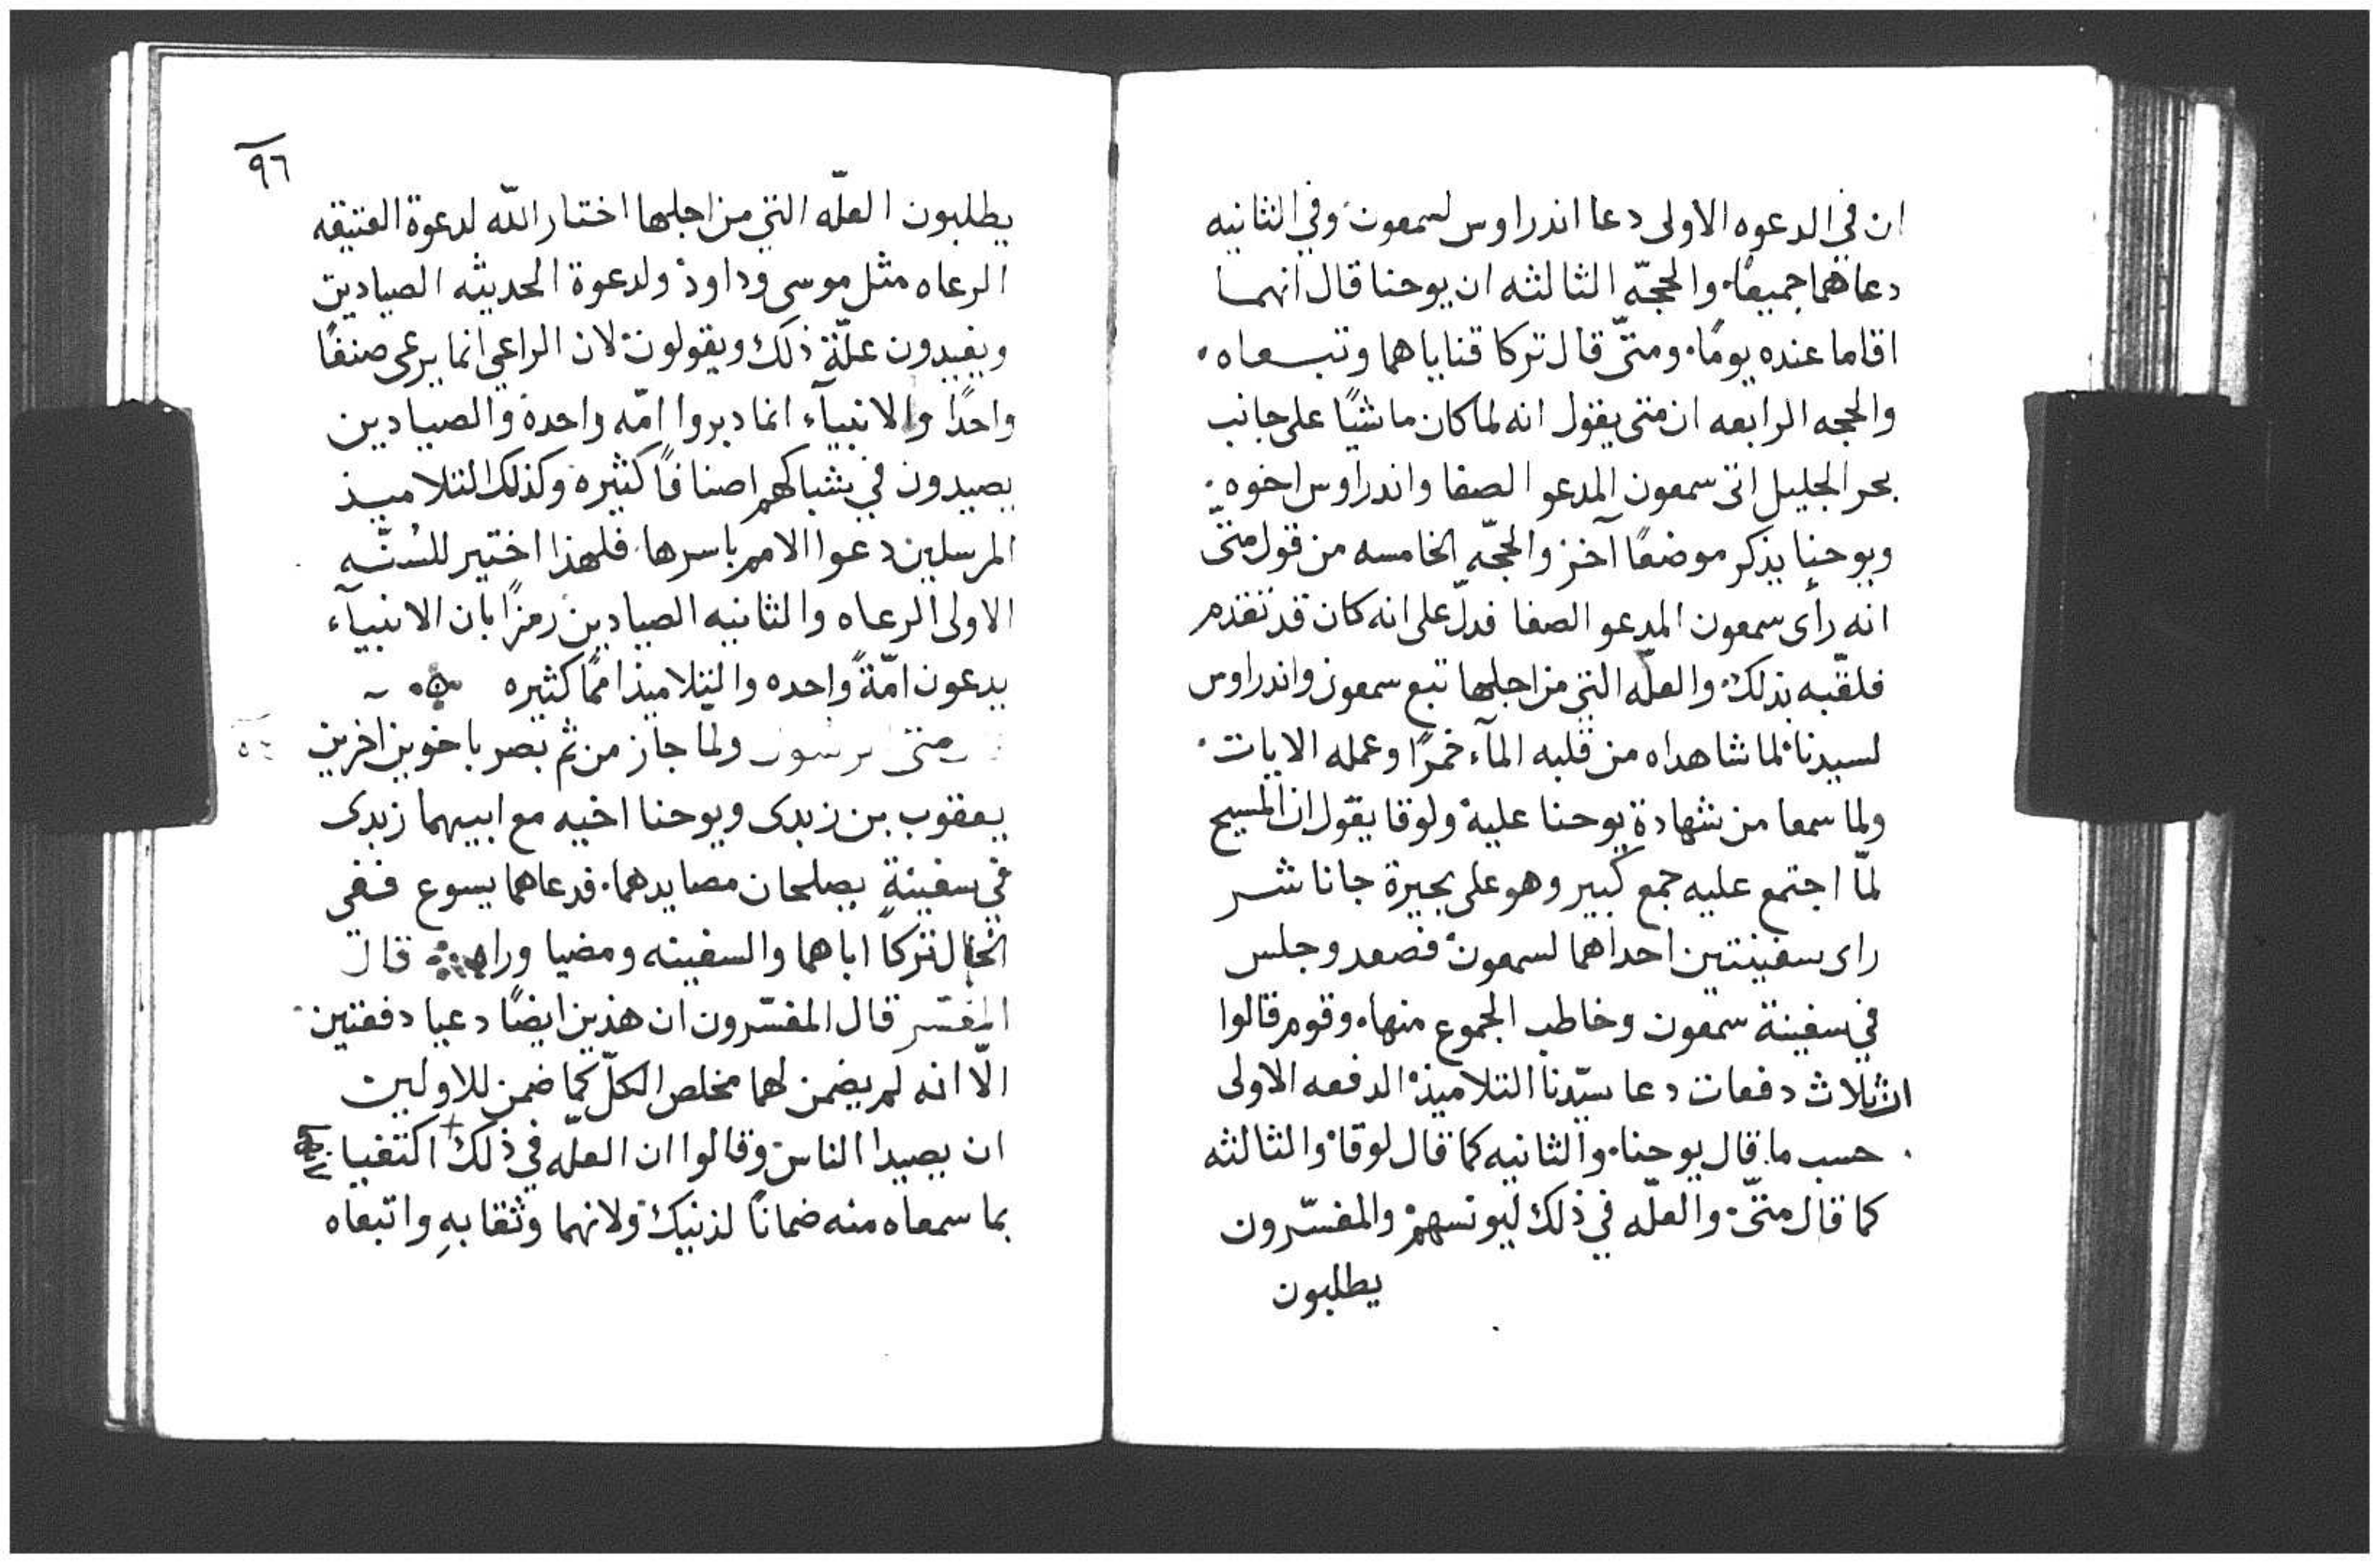 ان في الدعوه الاولى دعا اندراوس لسمعون وفي الثانيه
دعاهما جميعًا. والحجّه الثالثه ان يوحنا قال انهما
اقاما عنده يومًا. ومتّى قال تركا قناياهما وتبعاه.
والحجه الرابعه ان متى يقول انه لما كان ماشيًا على جانب
بحر الجليل اتى سمعون المدعو الصفا واندراوس اخوه.
ويوحنا يذكر موضعًا آخر والحجّه الخامسه من قول متّى
انه رأى سمعون المدعو الصفا فدلّ على انه كان قد تقدم
فلقّبه بذلك. والعلّه التي من اجلها تبع سمعون واندراوس
لسيدنا لما شاهداه من قلبه المآء خمرًا وعمله الايات.
ولما سمعا من شهادة يوحنا عليه ولوقا يقول ان المسيح
لمّا اجتمع عليه جمع كبير وهو على بحيرة جاناشر
راى سفينتين احداهما لسمعون فصعد وجلس
في سفينة سمعون وخاطب الجموع منها. وقوم قالوا
ان ثلاث دفعات دعا سيّدنا التلاميذ الدفعه الاولى
حسب ما قال يوحنا. والثانيه كما قال لوقا والثالثه
كما قال متّى. والعلّه في ذلك ليونسهم والمفسّرون
يطلبون
٩٦
يطلبون العلّه التي من اجلها اختار اللّه لدعوة العتيقه
الرعاه مثل موسى وداود ولدعوة الحديثه الصيادين
ويفيدون علّة ذلك ويقولون لان الراعي انما يرعى صنفًا
واحدًا والانبيآء انما دبروا امّه واحدة والصيادين
يصيدون في شباكهم اصنافًا كثيره وكذلك التلاميذ
المرسلين دعوا الامم باسرها. فلهذا اختير للسُنّه
الاولى الرعاه والثانيه الصيادين رمزًا بان الانبيآء
يدعون امّةً واحده والتلاميذ اممًا كثيره
متى ولمّا جاز من ثم بصر باخوين آخرين
يعقوب بن زبدى ويوحنا اخيه مع ابيهما زبدى
في سفينةٍ يصلحان مصايدهما. فدعاهما يسوع ففي
الحال تركا اباهما والسفينه ومضيا وراه قال
المفسّر قال المفسّرون ان هذين ايضًا دعيا دفعتين
الّا انه لم يضمن لهما مخلص الكلّ كما ضمن للاولين
ان يصيدا الناس وقالوا ان العلّه في ذلك اكتفيا
بما سمعاه منه ضمانًا لذنيك ولانهما وثقا بهِ واتبعاه